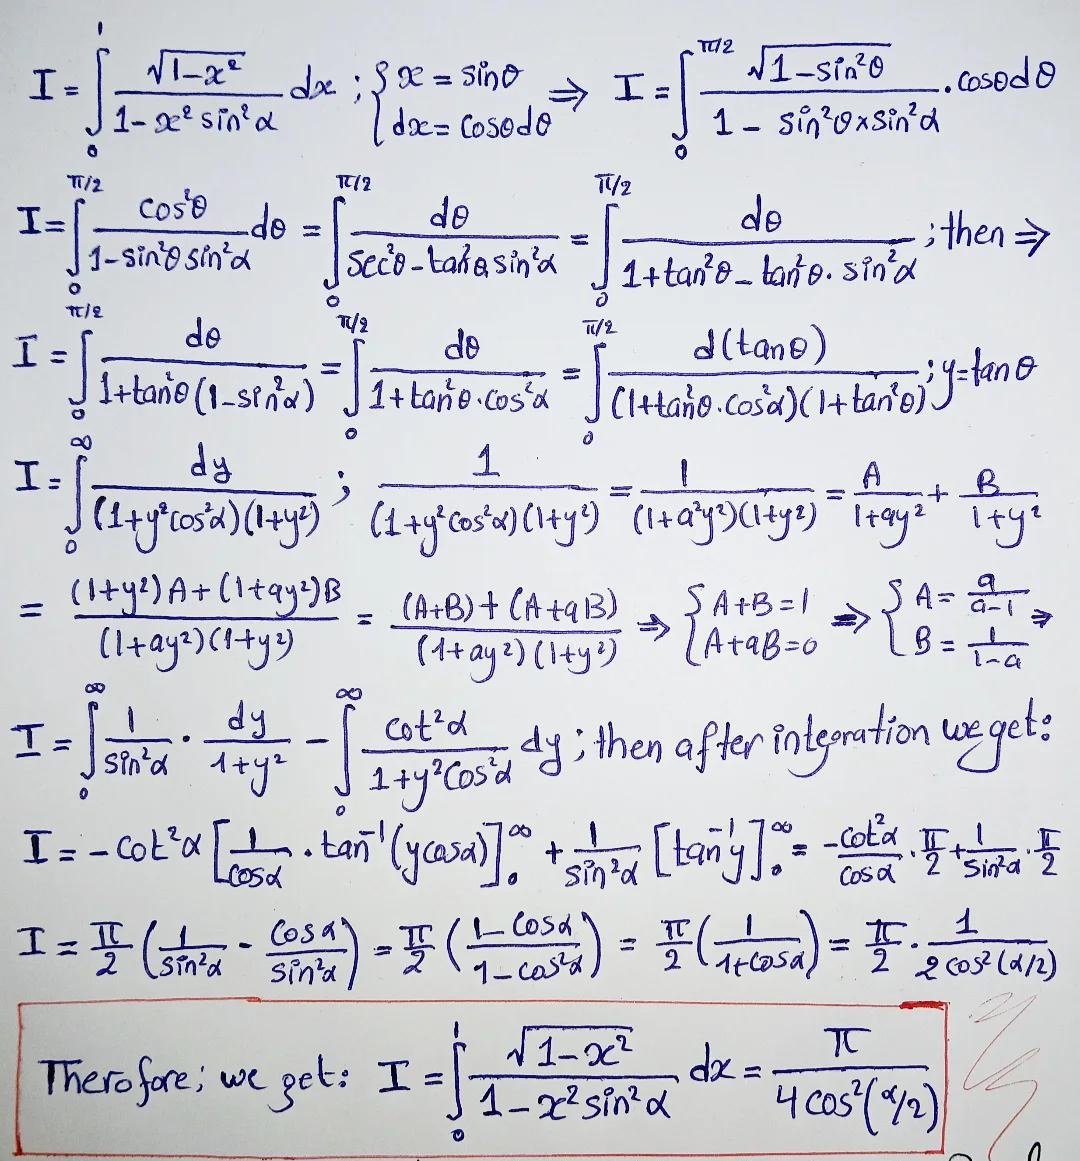 I = ∫₀¹ √(1-x²) / (1-x² sin²α) dx ; { x = sinθ , dx = cosθdθ ⇒ I = ∫₀^(π/2) √(1-sin²θ) / (1 - sin²θ×sin²α) . cosθdθ
I = ∫₀^(π/2) cos²θ / (1-sin²θ sin²α) dθ = ∫₀^(π/2) dθ / (sec²θ-tan²θ sin²α) = ∫₀^(π/2) dθ / (1+tan²θ - tan²θ. sin²α) ; then ⇒
I = ∫₀^(π/2) dθ / (1+tan²θ (1-sin²α)) = ∫₀^(π/2) dθ / (1+tan²θ.cos²α) = ∫₀^(π/2) d(tanθ) / ((1+tan²θ.cos²α)(1+tan²θ)) ; y=tanθ
I = ∫₀^∞ dy / ((1+y²cos²α)(1+y²)) ; 1 / ((1+y²cos²α)(1+y²)) = 1 / ((1+a²y²)(1+y²)) = A / (1+ay²) + B / (1+y²)
= ((1+y²)A+(1+ay²)B) / ((1+ay²)(1+y²)) = ((A+B)+(A+aB)) / ((1+ay²)(1+y²)) ⇒ { A+B=1 , A+aB=0 ⇒ { A = a/(a-1) , B = 1/(1-a) ⇒
I = ∫₀^∞ 1/sin²α . dy/(1+y²) - ∫₀^∞ cot²α / (1+y²cos²α) dy ; then after integration we get:
I = -cot²α [1/cosα . tan⁻¹(ycosα)]₀^∞ + 1/sin²α [tan⁻¹y]₀^∞ = -cot²α/cosα . π/2 + 1/sin²α . π/2
I = π/2 (1/sin²α - cosα/sin²α) = π/2 ((1-cosα)/(1-cos²α)) = π/2 (1/(1+cosα)) = π/2 . 1/(2cos²(α/2))
Therofore; we get: I = ∫₀¹ √(1-x²) / (1-x²sin²α) dx = π / (4cos²(α/2))